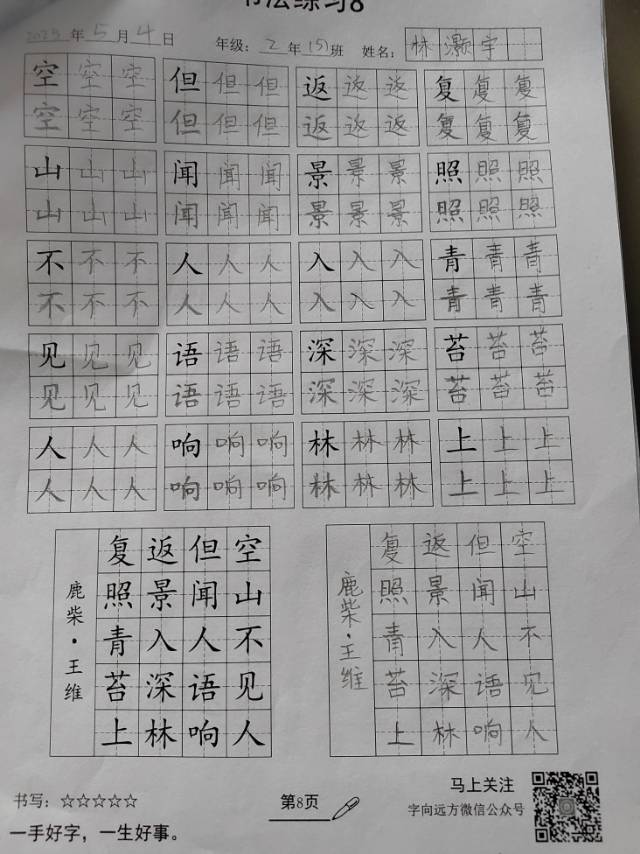 书法练习8
2025年5月4日 年级：2年15班 姓名：林灏宇
空空空 但但但 返返返 复复复
空空空 但但但 返返返 复复复
山山山 闻闻闻 景景景 照照照
山山山 闻闻闻 景景景 照照照
不不不 人人人 入入入 青青青
不不不 人人人 入入入 青青青
见见见 语语语 深深深 苔苔苔
见见见 语语语 深深深 苔苔苔
人人人 响响响 林林林 上上上
人人人 响响响 林林林 上上上
鹿柴·王维
空山不见人
但闻人语响
返景入深林
复照青苔上
鹿柴·王维
空山不见人
但闻人语响
返景入深林
复照青苔上
书写：☆☆☆☆☆
一手好字，一生好事。
第8页
马上关注
字向远方微信公众号